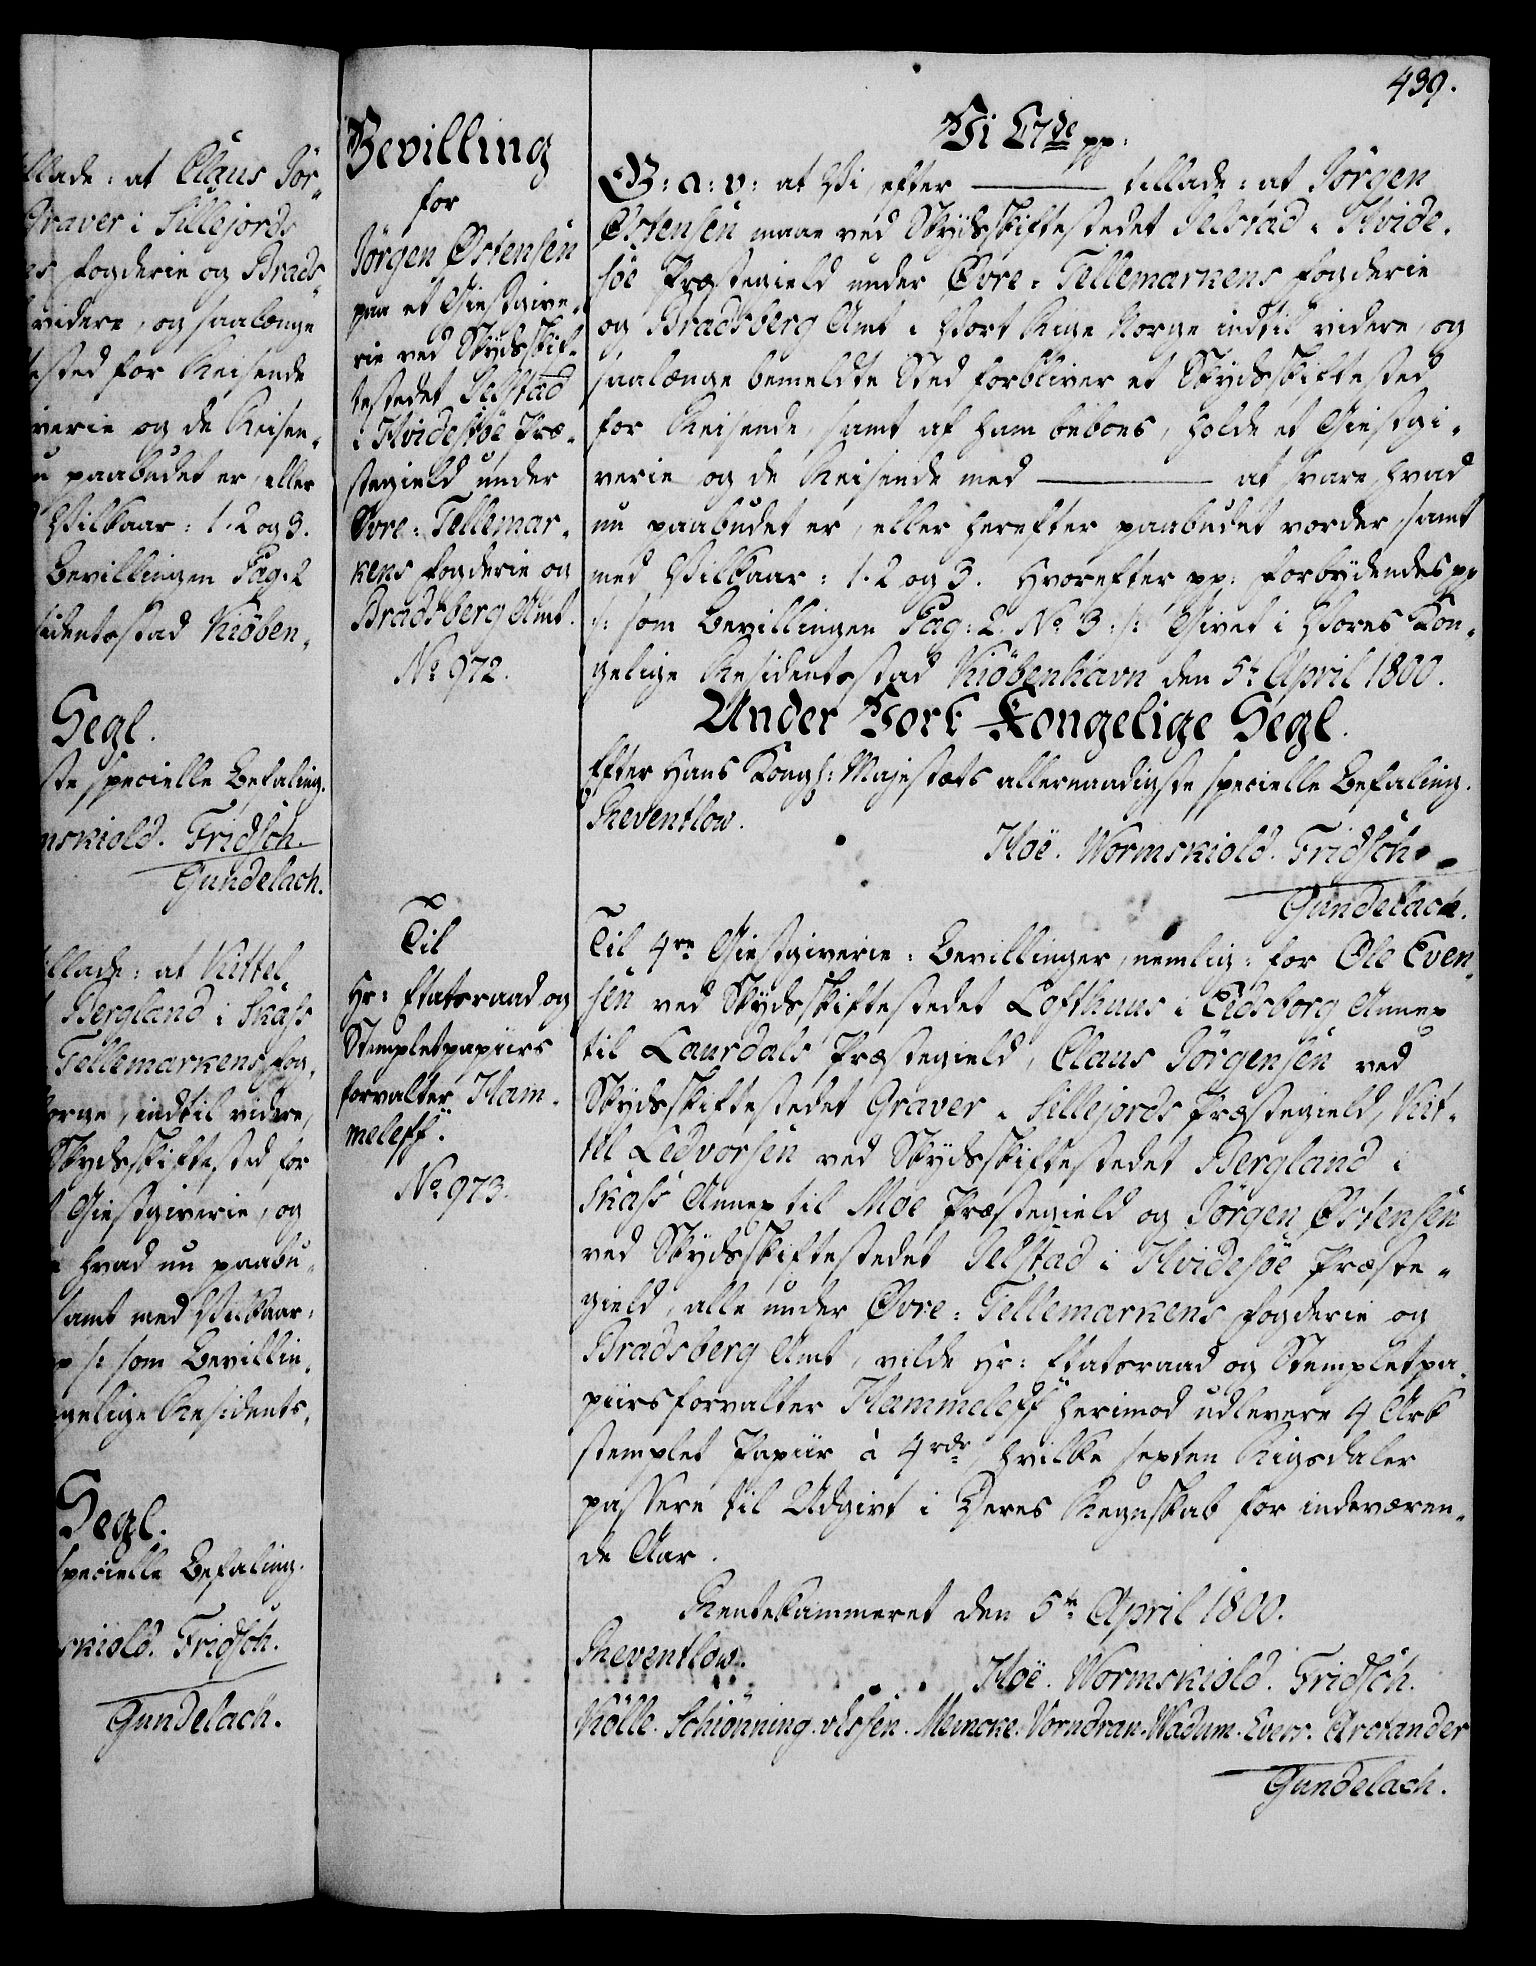 llade: at Claus Jör„
Graver i Sillejords
es Fogderie og Brads„
videre, og saalænge
tested for Reisende
iverie og de Reisen„
u paabudet er, eller
Vilkaar: 1. 2 og 3.
Bevillingen Pag. 2
sidentsstad Kiöben„
Segl.
ste specielle Befaling.
mskiold. Fridsch.
Gundelach.
illade: at Kittel
Bergland i Skafs
Tellemarkens Fog„
Norge, indtil videre,
Skydsskiftested for
t Giestgiverie, og
hvad nu paabu„
samt med Vilkaar:
p /: som Bevillin„
gelige Residents„
Segl.
specielle Befaling.
skiold. Fridsch.
Gundelach.
Bevilling
for
Jörgen Østensen
paa et Giestgive„
rie ved Skydsskif„
testedet Selstad
i Hvidesöe Præ„
stegield under
Øvre-Tellemar„
kens Fogderie og
Bradsberg Amt.
No. 972.
Til
Hr: Etatsraad og
Stempletpapiirs
forvalter Ham„
meleff.
No. 973.
439.
Vi C7de pp:
G: a: v: at Vi, efter ——— tillade: at Jörgen
Østensen maae ved Skydsskiftestedet Selstad i Hvide„
söe Præstegield under Øvre-Tellemarkens Fogderie
og Bradsberg Amt i Vort Rige Norge indtil videre, og
saalænge bemeldte Sted forbliver et Skydsskiftested
for Reisende, samt af ham beboes, holde et Giestgi„
verie og de Reisende med ——— at svare hvad
nu paabudet er, eller herefter paabudet vorder, samt
med Vilkaar: 1. 2 og 3. Hvorefter pp: Forbydendes pp
/: som Bevillingen Pag: 2. No 3 :/ Givet i Vores Kon„
gelige Residentsstad Kiöbenhavn den 5t April 1800.
Under Vort Kongelige Segl.
Efter Hans Kongl: Majestæts allernaadigste specielle Befaling.
Reventlow.
Hoë. Wormskiold. Fridsch.
Gundelach.
Til 4re Giestgiverie-Bevillinger, nemlig: for Ole Even„
sen ved Skydsskiftestedet Lofthuus i Eidsborg Annex
til Laurdals Præstegield, Claus Jörgensen ved
Skydsskiftestedet Graver i Sillejords Præstegield, Kit„
tel Ledvorsen ved Skydsskiftestedet Bergland i
Skafs Annex til Moe Præstegield og Jörgen Østensen
ved Skydsskiftestedet Selstad i Hvidesöe Præste„
gield, alle under Øvre-Tellemarkens Fogderie og
Bradsberg Amt, vilde Hr: Etatsraad og Stempletpa„
piirsforvalter Hammeleff herimod udlevere 4 Ark
stemplet Papiir à 4 rdr, hvilke sexten Rigsdaler
passere til Udgivt i Deres Regnskab for indeværen„
de Aar.
Rentekammeret den 5te April 1800.
Reventlow.
Hoë. Wormskiold. Fridsch.
Kölle. Schiönning. Meincke. Vorndran. Wadum. Evers. Arctander
Gundelach.